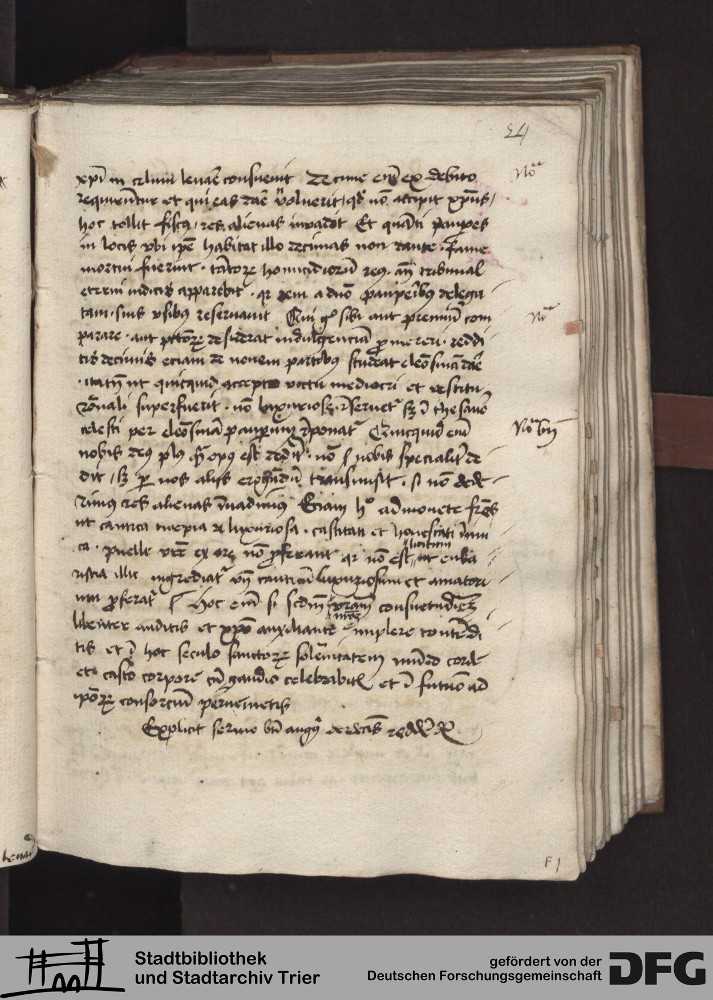 54
xpi in celum levare consuevit Decime enim ex debito
requiruntur et qui eas dare noluerit qd no accipit xpus
hoc tollit fiscus res alienas invadit Et quanti pauperes
in locis ubi ipse habitat illo decimas non dante fame
mortui fuerint tantorum homicidiorum reus ante tribunal
eterni iudicis apparebit qr rem a dno pauperibus delega
tam suis usibus reservavit Qui ergo sibi aut premium com
parare aut peccatorum desiderat indulgenciam promereri reddi
tis decimis eciam de novem partibus studeat elemosinam dare
itatamen ut quicquid excepto victu mediocri et vestitu
racionali superfuerit non luxuriose reservetur sed in thesauro
celesti per elemosinam pauperum reponatur Quicquid enim
nobis deus plus quam opus est dederit non nobis specialiter de
dit sed per nos aliis erogandum transmisit si non dede
rimus res alienas invadimus Eciam hoc admonete fratres
ut cantica turpia et luxuriosa castitati et honestati inimi
ca puelle vestre ex ore non proferant qr non est iustum ut
ingrediatur cantica luxuriosum et amatori
um proferatur Hoc enim si secundum vestram consuetudinem
libenter auditis et xpo auxiliante implere contendi
tis et in hoc seculo sanctorum solemnitatem mundo corde
et casto corpore cum gaudio celebrabitis et in futuro ad
ipsorum consorcium pervenietis
Explicit sermo bti augus de decimis reddendis
Nota
Nota
Nota bn
F 1
Stadtbibliothek
und Stadtarchiv Trier
gefördert von der
Deutschen Forschungsgemeinschaft
DFG